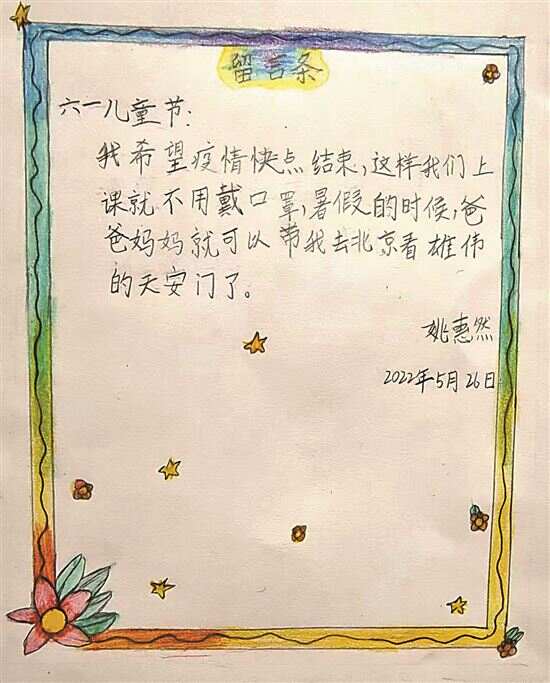 留言条
六一儿童节:
我希望疫情快点结束,这样我们上
课就不用戴口罩,暑假的时候,爸
爸妈妈就可以带我去北京看雄伟
的天安门了。
姚惠然
2022年5月26日